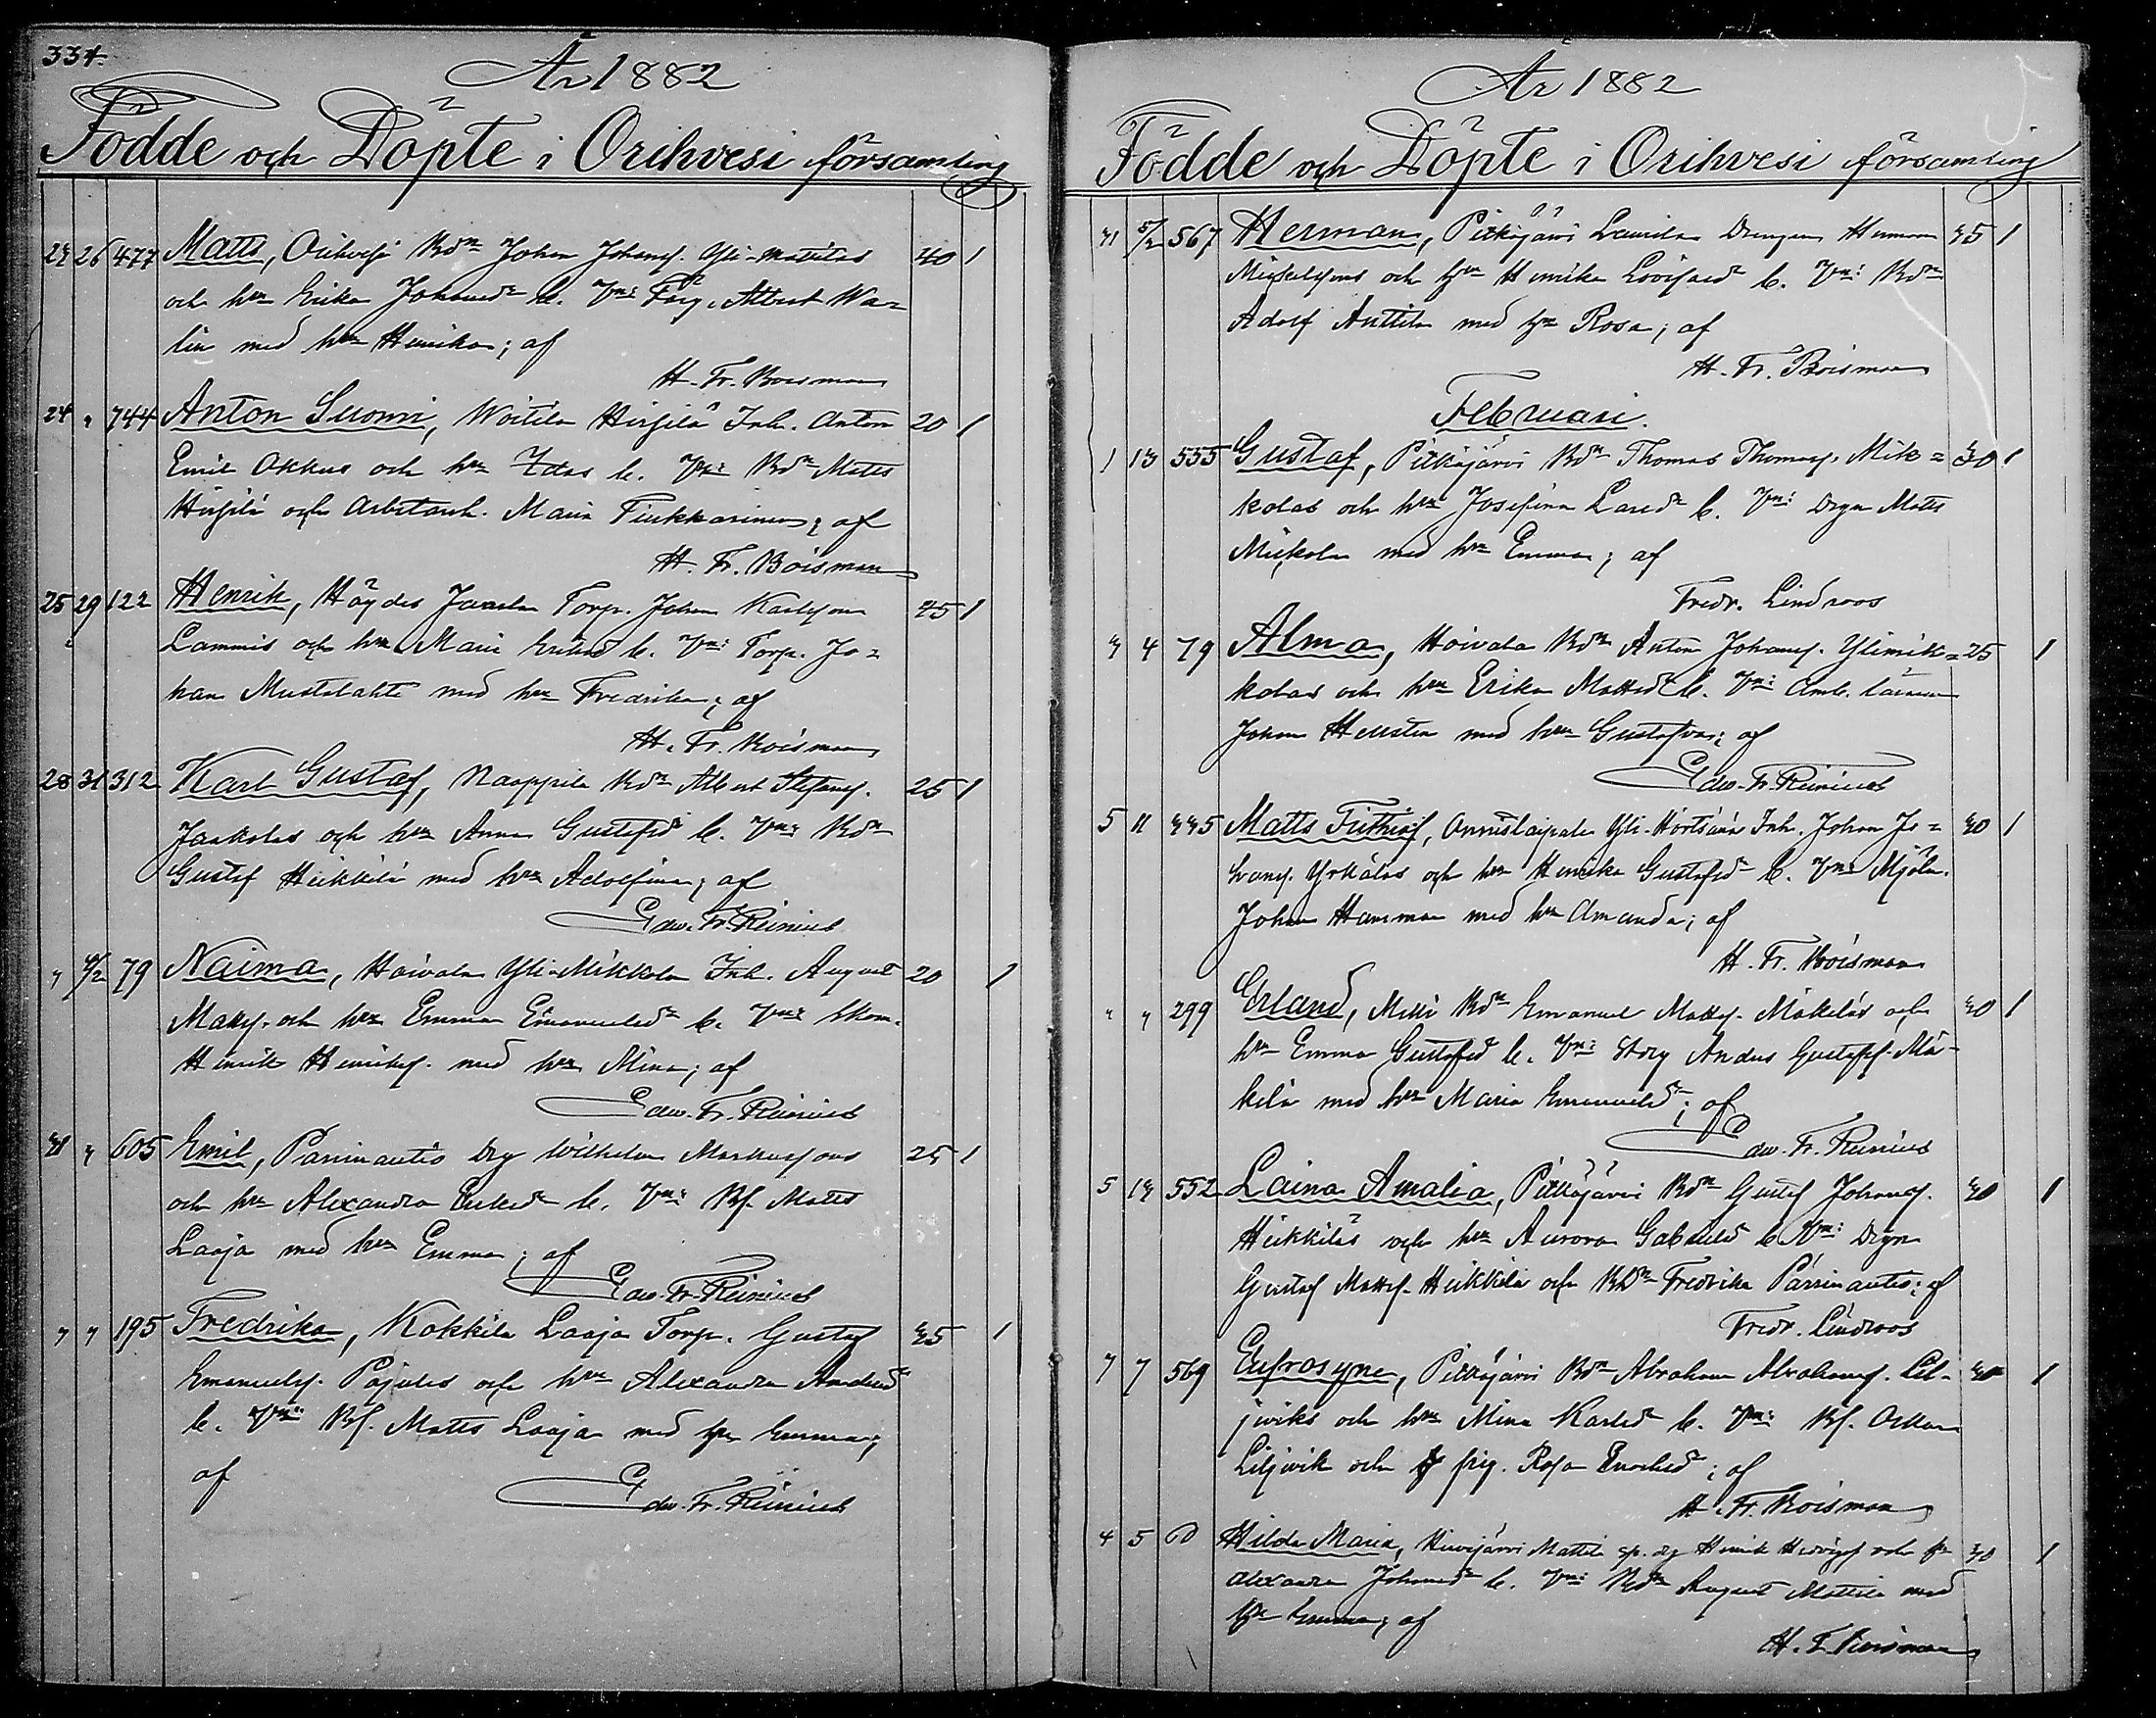 334.
År 1882
Födde och Döpte i Orihvesi församling
23 26 477 Matts, Orihvesi Bdn Johan Johansf. Yli-mattilas 40 1
och hu Erika Johansdr b. Vn: Torp. Albert Wa=
lin med hu Henrika; af
H. Fr. Boisman
24 " 744 Anton Suomi, Woitila Hirsilä Inh. Anton 20 1
Emil Okkus och hu Idas b. Vn: Bdn Matts
Hirsilä och Arbetarck. Maria Tiukkarinen; af
H. Fr. Boisman
25 29 122 Henrik, Torp. Johan Karlsson 45 1
Lammis och hu Maria b. Vn: Torp. Jo=
han Mustalahti med hu Fredrika; af
H. Fr. Boisman
28 31 312 Karl Gustaf, Naappila Bdn Albert Stefansf. 25 1
Jaakolas och hu Anna Gustafsd b. Vn: Bdn
Gustaf Heikkilä med hu Adolfina; af
Edw. Fr. Reinius
" 4/2 79 Naima, Hoivala Yli-Mikkola Inh. August 20 1
Mattsf. och hu Emma Emanuelsdr b. Vn: Skom.
Henrik Henriksf. med hu Mina; af
Edw. Fr. Reinius
31 " 605 Emil, Parrinantis Drg Wilhelm Markussons 25 1
och hu Alexandra Eriksdr b. Vn: Bf. Matts
Laaja med hu Emma; af
Edw. Fr. Reinius
" " 195 Fredrika, Kokkila Laaja Torp. Gustaf 35 1
Emanuelsf. Pajulas och hu Alexandra Andersd
b. Vn: Bf. Matts Laaja med hu Emma;
af
Edw. Fr. Reinius
År 1882
Födde och Döpte i Orihvesi församling
31 5/2 567 Herman, Pitkäjärvi Laurila Drengen Herman 35 1
Mickelssons och hu Henrika Lovisasdr b. Vn: Bdn
Adolf Anttila med hu Rosa; af
H. Fr. Boisman
Februari.
1 13 555 Gustaf, Pitkäjärvi Bdn Thomas Thomasf. Mik= 30 1
kolas och hu Josefina b. Vn: Drgn Matts
Mickola med hu Emma; af
Fredr. Lindroos
3 4 79 Alma, Hoivala Bdn Anton Johansf. Ylimik= 25 1
kolas och hu Erika Mattsdr b. Vn:
Johan Hellsten med hu Gustafva; af
Edw. Fr. Reinius
5 11 335 Matts Frithiof, Onnistaipale Yli-Hörtsänä Inh. Johan Jo= 30 1
hansf. Yrkälas och hu Henrika Gustafsdr b. Vn: Mjöln.
Johan Hamman med hu Amanda; af
H. Fr. Boisman
" " 299 Erland, Bdn Emanuel Mattsf. Mäkeläs och 30 1
hu Emma Gustafsd b. Vn: Anders Gustafsf. Mä=
kelä med hu Maria Emanuelsdr; af
Edw. Fr. Reinius
5 13 552 Laina Amalia, Pitkäjärvi Bdn Gustaf Johansf. 30 1
Heikkiläs och hu Aurora Gabrielsd b. Vn: Drgn
Gustaf Mattsf. Heikkilä och Bdn Fredrika Parrinantis; af
Fredr. Lindroos
7 7 569 Eufrosyne, Pitkäjärvi Bdn Abraham Abrahamsf. Lil= 40 1
jviks och hu Mina Karlsdr b. Vn: Bf. Oskar
Liljvik och pig. Rosa Enochsd; af
H. Fr. Boisman
4 5 Hilda Maria, Hirvijärvi Mattila drg Henrik och hu 30 1
Alexandra Johansdr b. Vn: Bdn August Mattila med
hu Emma; af
H. F. Boisman